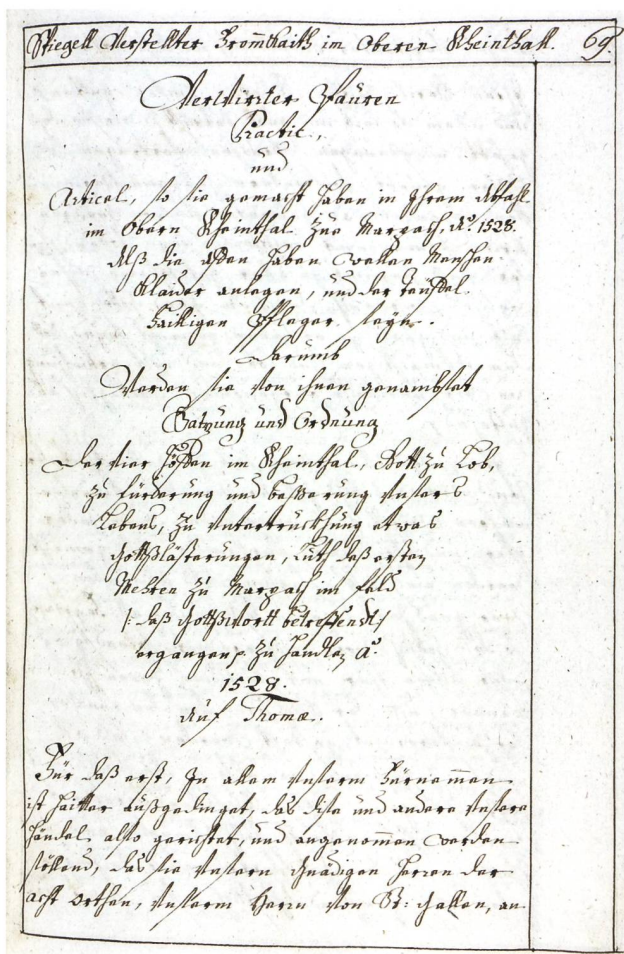 Spiegell Verstellter Frommkaith im Oberen Rheinthall. 69.
Verwirrter Pauren
Practic,
und
Articel, so sie gemacht haben in Ihrem Abfahl
im Obern Rheinthal zue Marpach, Aº. 1528.
Alß die Affen haben wellen Menschen
Klaider anlegen, und der Teüffel
Hailligen Pfleger seyn.
Darumb
Werden sie von ihnen genambstet
Satzung und Ordnung
Der vier Höffen im Rheinthal, Gott zu Lob,
zu fürderung und beßerung unsers
Lebens, zu untertruckhung etwas
Gottßlästerungen, Luth deß ersten
Mehren zu Marpach im feld
/: daß Gottßwortt betreffendt :/
ergangen p. zu handlen Aº.
1528.
Auf Thomæ.
Für daß erst, In allem unserm Fürnemmen
ist haitter außgedinget, das dise und andere unsere
händel also gerichtet, und angenommen werden
söllend, das sie unsern Gnädigen Herren der
acht Orthen, unserm Herrn von St: Gallen, an